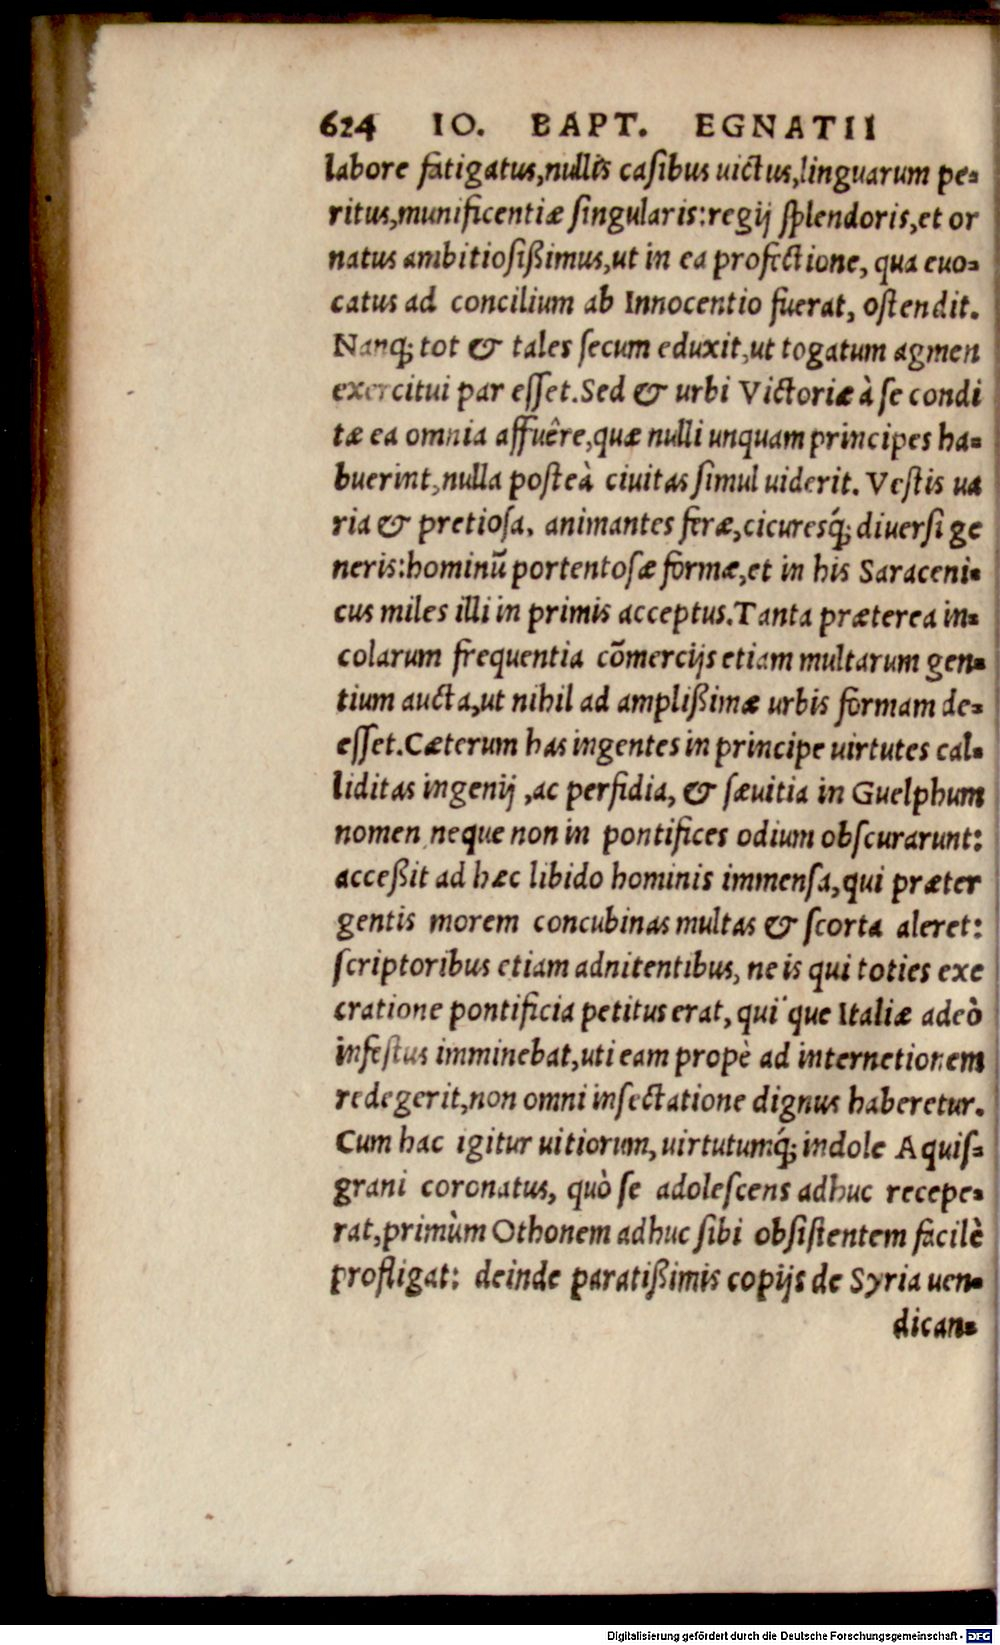 624 IO. BAPT. EGNATII
labore fatigatus, nullis casibus uictus, linguarum pe-
ritus, munificentiæ singularis: regij splendoris, et or
natus ambitiosißimus, ut in ea profectione, qua euo-
catus ad concilium ab Innocentio fuerat, ostendit.
Nanq; tot & tales secum eduxit, ut togatum agmen
exercitui par esset. Sed & urbi Victoriæ à se condi
tæ ea omnia affuêre, quæ nulli unquam principes ha-
buerint, nulla posteà ciuitas simul uiderit. Vestis ua
ria & pretiosa, animantes feræ, cicuresq́; diuersi ge
neris: hominũ portentosæ formæ, et in his Saraceni-
cus miles illi in primis acceptus. Tanta præterea in-
colarum frequentia cõmercijs etiam multarum gen-
tium aucta, ut nihil ad amplißimæ urbis formam de-
esset. Cæterum has ingentes in principe uirtutes cal-
liditas ingenij, ac perfidia, & sæuitia in Guelphum
nomen neque non in pontifices odium obscurarunt:
acceßit ad hæc libido hominis immensa, qui præter
gentis morem concubinas multas & scorta aleret:
scriptoribus etiam adnitentibus, ne is qui toties exe
cratione pontificia petitus erat, qui que Italiæ adeò
infestus imminebat, uti eam propè ad internetionem
redegerit, non omni insectatione dignus haberetur.
Cum hac igitur uitiorum, uirtutumq́; indole Aquis-
grani coronatus, quò se adolescens adhuc recepe-
rat, primùm Othonem adhuc sibi obsistentem facilè
profligat: deinde paratißimis copijs de Syria uen-
dican-
Digitalisierung gefördert durch die Deutsche Forschungsgemeinschaft - DFG